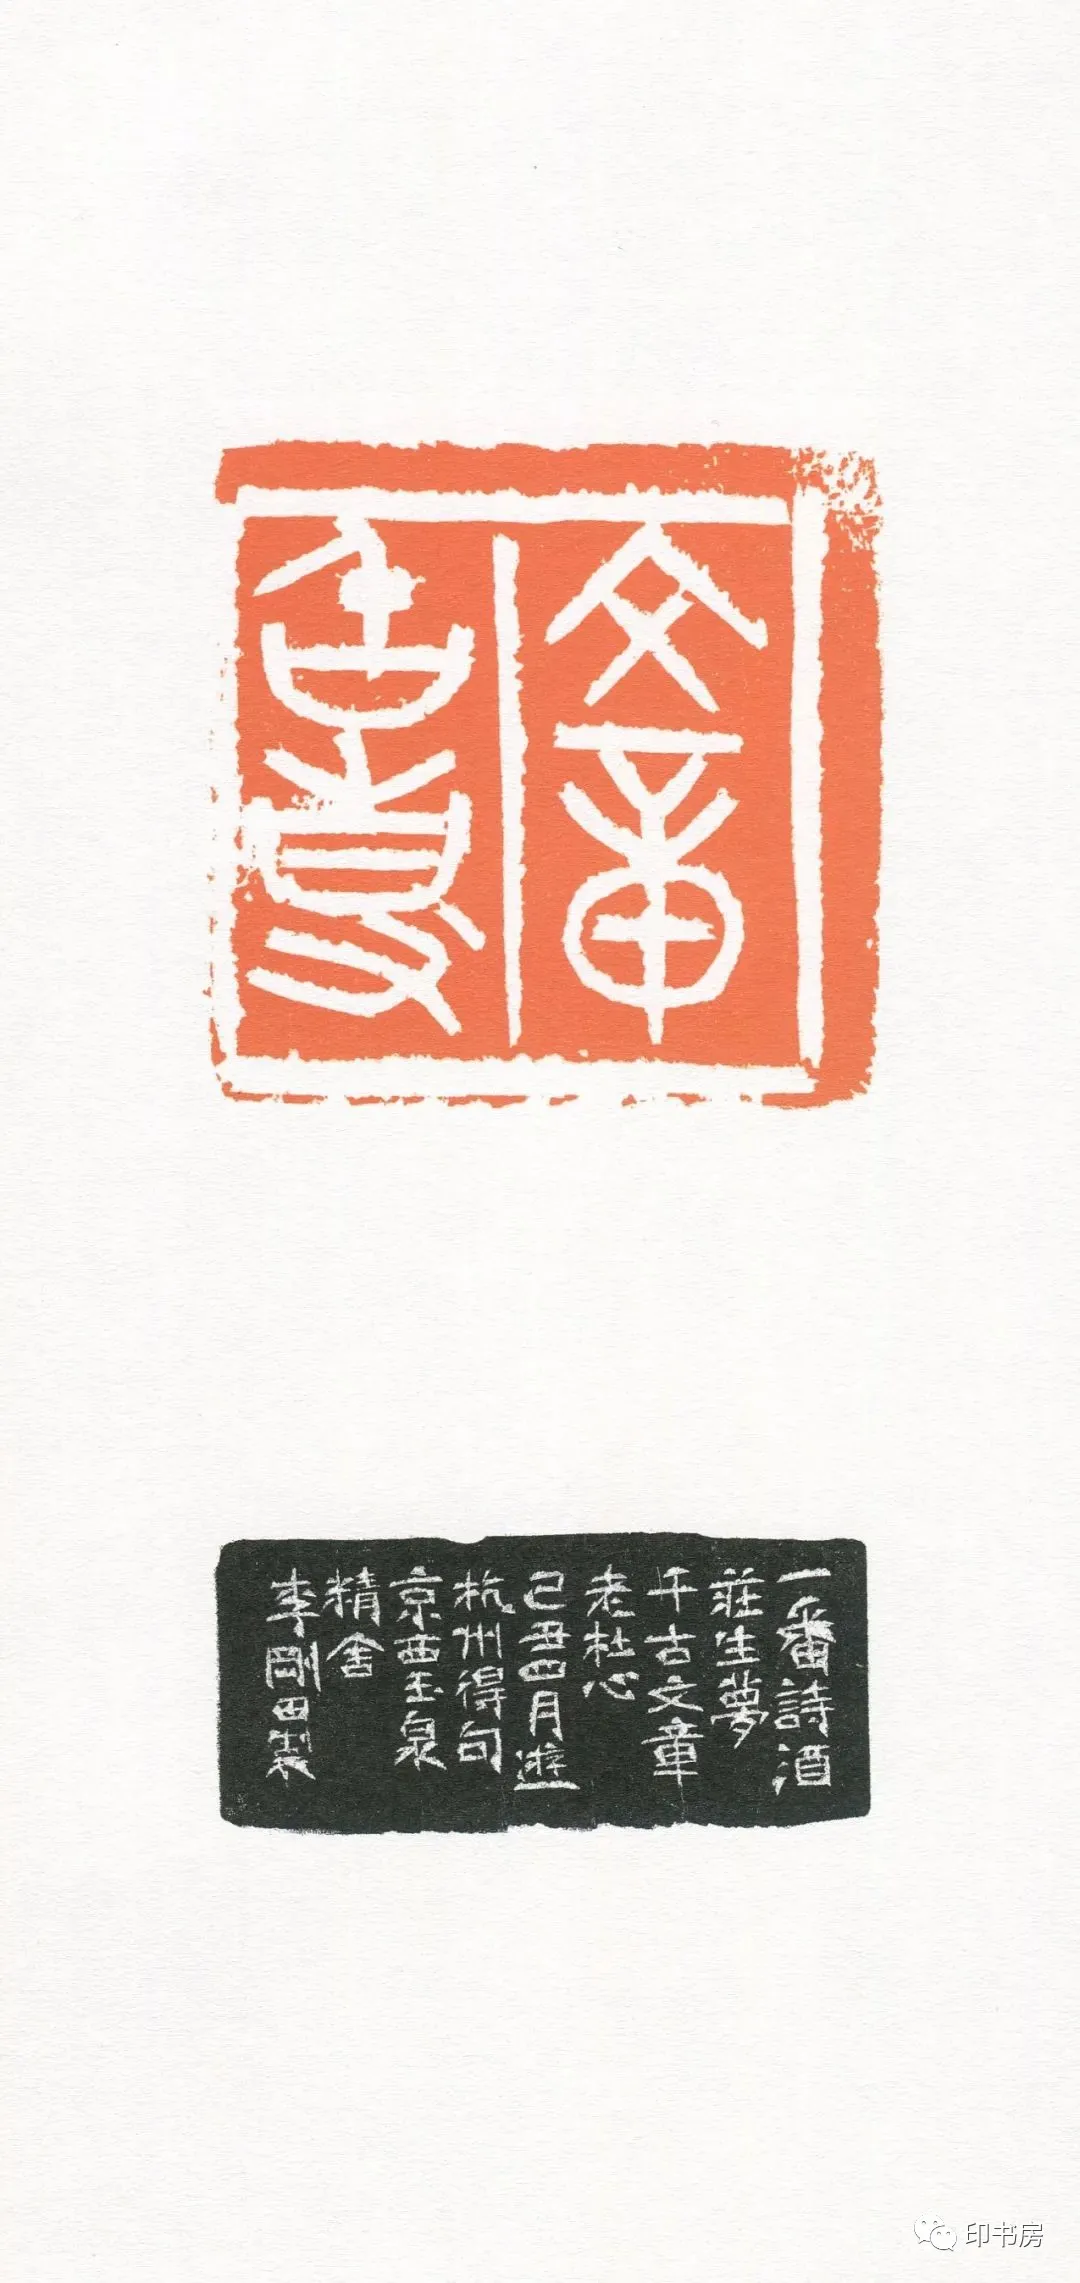 文章
千古事
一番詩酒
莊生夢
千古文章
老杜心
己丑四月遊
杭州得句
京西玉泉
精舍
李剛田製
印书房